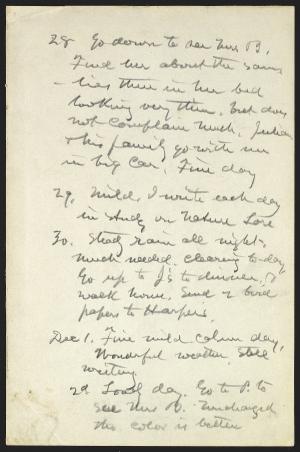 28 Go down to see Mrs B.
Find her about the same
- lies there in her bed
looking very thin, but does
not complain much. Julian
& his family go with me
in big car. Fine day
29, Mild, I write each day
in study on Nature Lore
30. Steady rain all night,
much needed. clearing to-day,
Go up to J's to dinner, &
walk home. Send 2 bird
papers to Harpers.
Dec 1. Fine mild calm day,
Wonderful weather, still
writing.
2d Lovely day. Go to P. to
see Mrs B. Unchanged
tho color is better